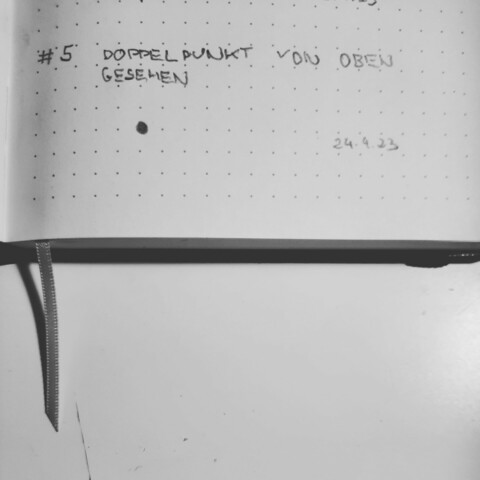 #5 DOPPELPUNKT VON OBEN
GESEHEN
24.4.23